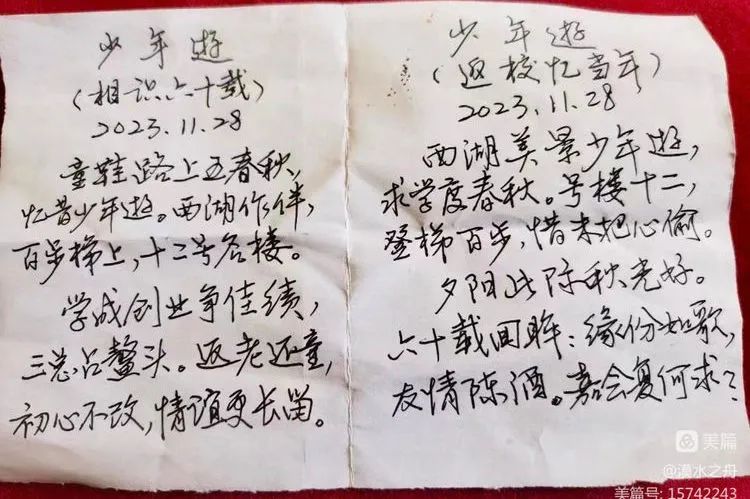 少年遊
（相识六十载）
2023.11.28
童鞋路上五春秋，
忆昔少年遊。西湖作伴，
百步梯上，十二号名楼。
学成创业争佳绩，
三总占鳌头。返老还童，
初心不改，情谊更长留。
少年遊
（返校忆当年）
2023.11.28
西湖美景少年遊，
求学度春秋。号楼十二，
登梯百步，惜未把心偷。
夕阳此际秋光好。
六十载回眸：缘份如歌，
友情陈酒。嘉会复何求？
美篇
@漠水之舟
美篇号: 15742243